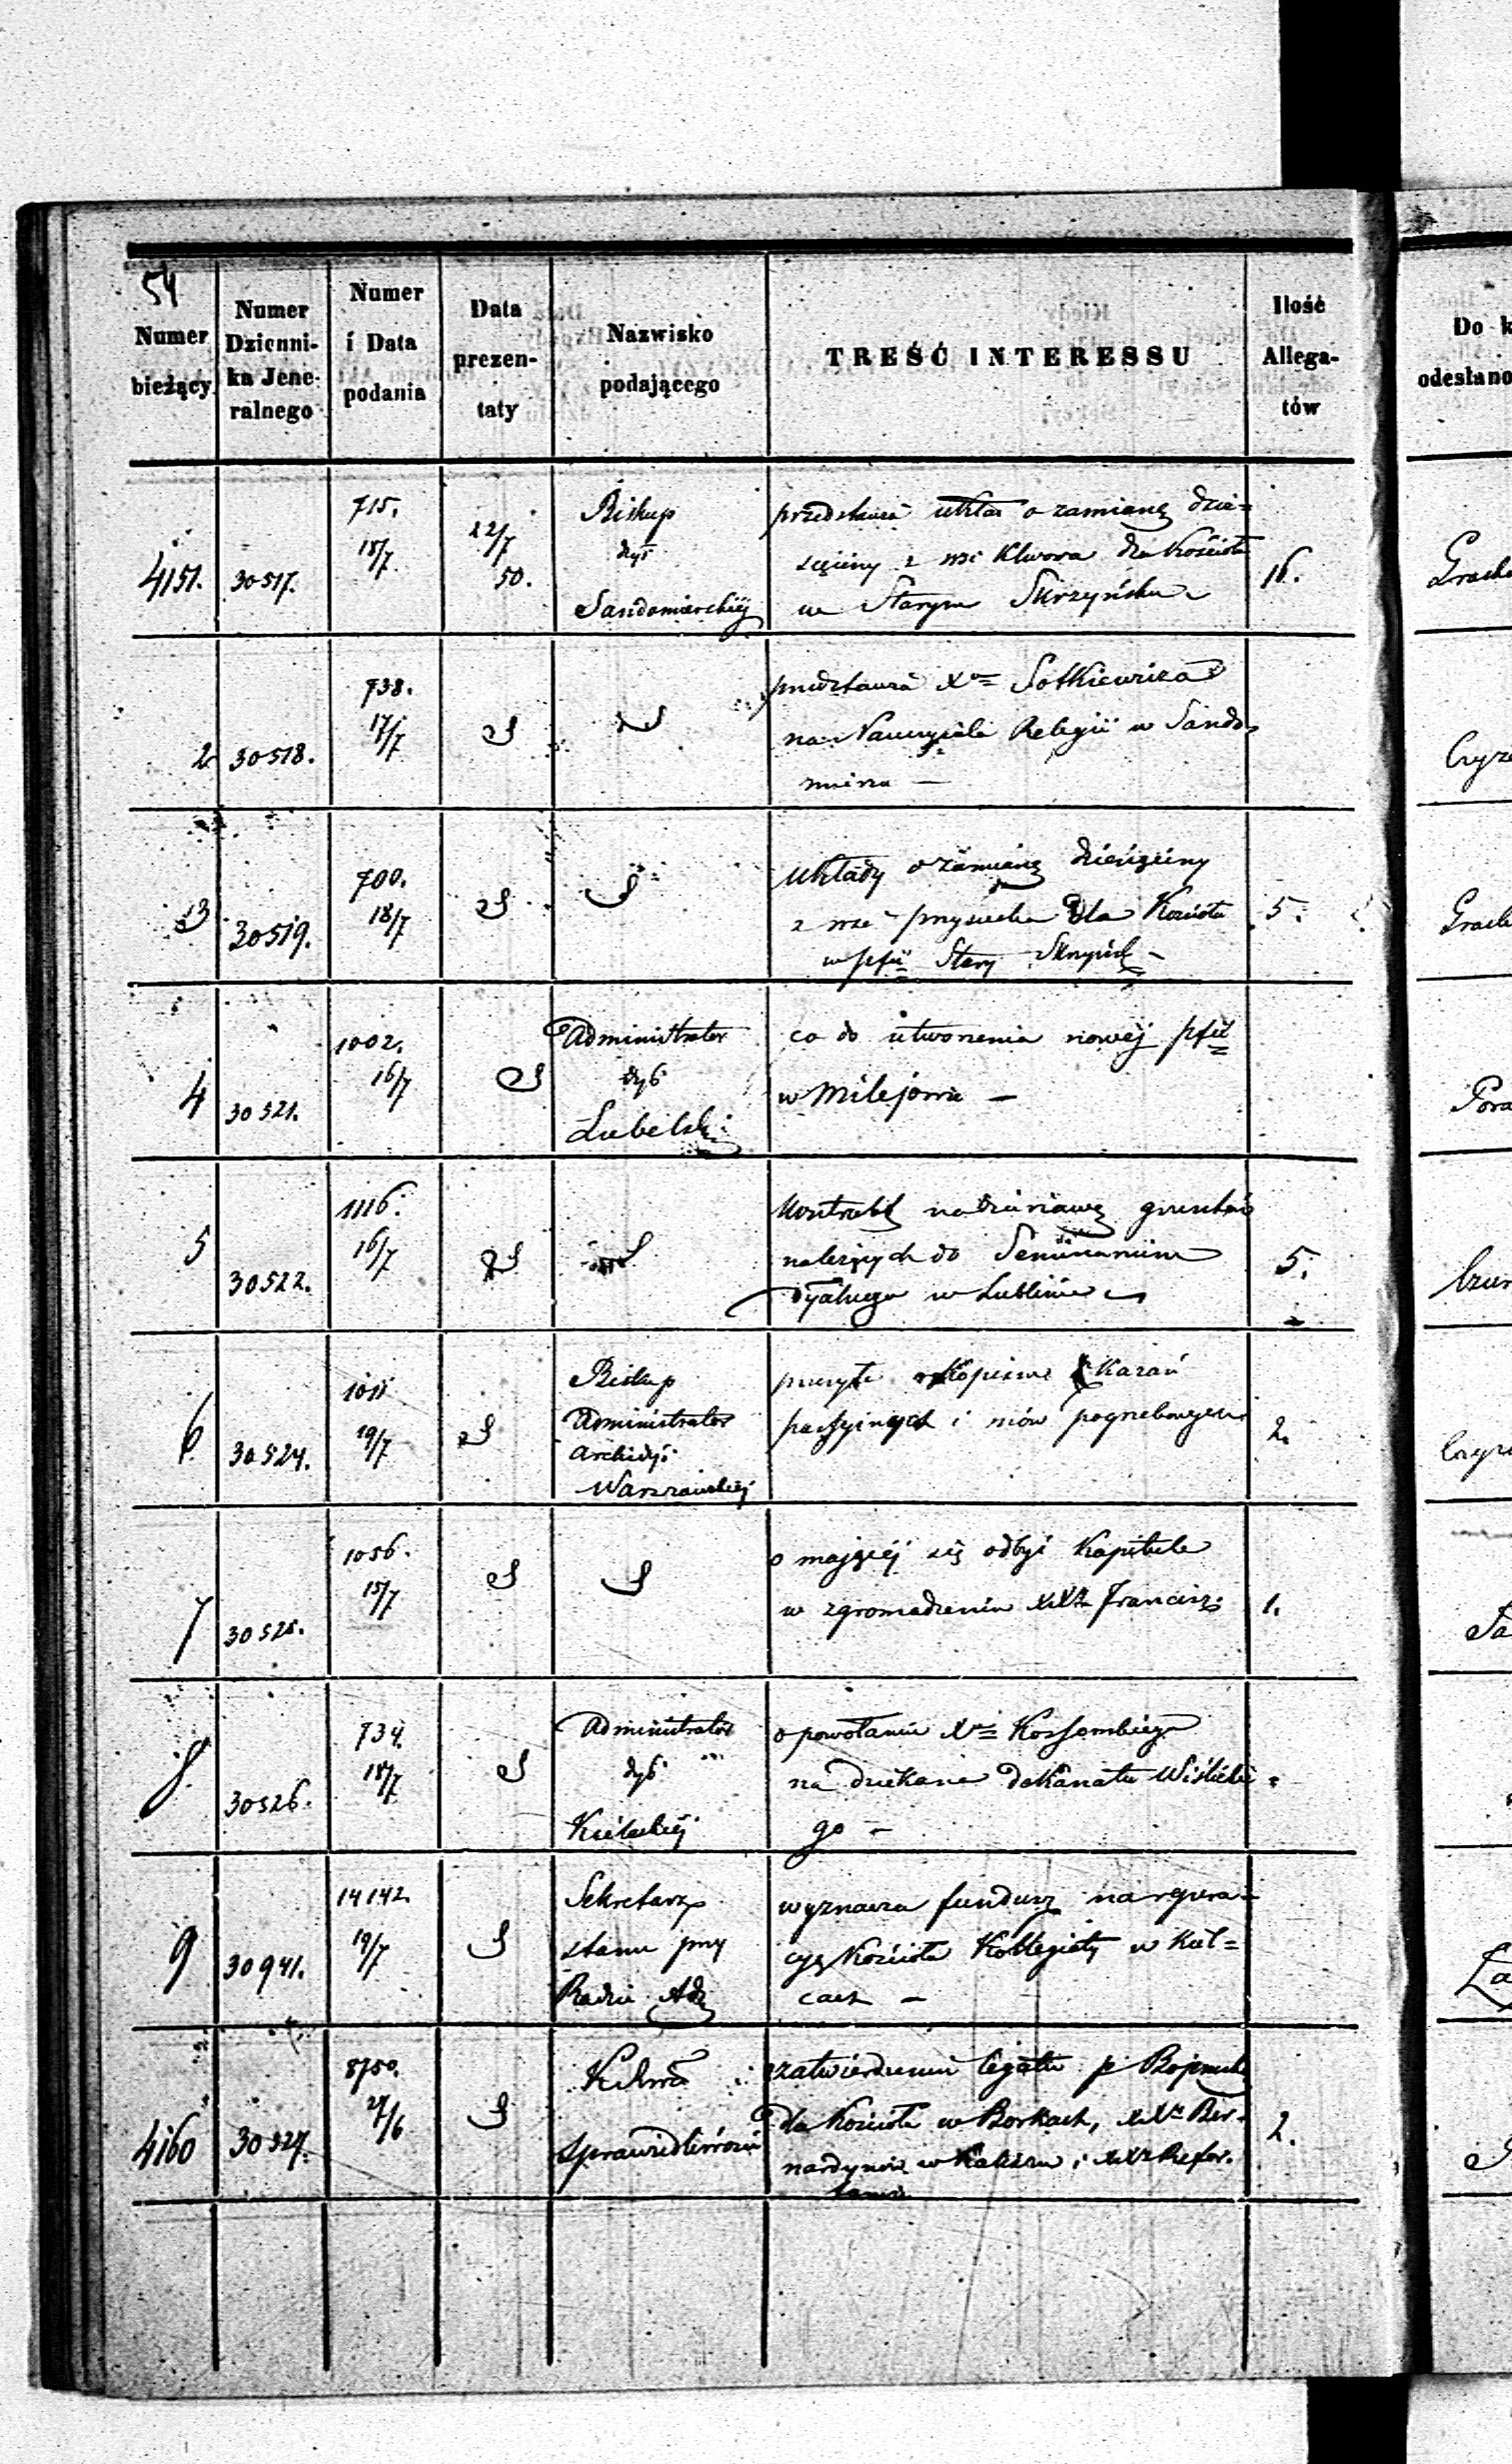 54
Numer bieżący
Numer Dzienni- ka Jene- ralnego
Numer i Data podania
Data prezen- taty
Nazwisko podającego
TREŚĆ INTERESSU
Ilość Allega- tów
Do k
odesłano
4151.
30517.
715.
18/7
22/7
50.
Biskup
dyi
Sandomierskiéj
przedstawia układ o zamianę dzie=
sięciny z wsi Klwowa dla Kościoła
w Starym Skrzyńsku
16.
2
30518.
738.
17/7
przedstawia Xa Sotkiewicza
na Nauczyciela Religii w Sando
mierzu —
3
30519.
700.
18/7
układy o zamianę dziesięciny
z wsi Przysucha dla Kościoła
w pfii Stary Skrzyńsk —
5.
4
30521.
1002.
16/7
Administrator
dyi
Lubelski
co do utworzenia nowéj pfii
w Milejowie —
5
30522.
1116.
16/7
Kontrakt na dzierżawę gruntów
należących do Seminarium
dyalnego w Lublinie
5.
6
30524.
1011
19/7
Biskup
Administrator
Archidyi
Warszawskiéj
przesyła rękopisma Kazań
passyinych i mów pogrzebowych
2.
7
30525.
1056.
15/7
o majęcéj się odbyć Kapitule
w zgromadzeniu XXzy Francisz:
1.
8.
30526.
734.
18/7
Administrator
dyi
Kieleckiéj
o powołaniu Xa
na dziekana dekanatu Wiślickie
go —
9
30941.
14142.
19/7
Sekretarz
stanu przy
Radzie Adz
wyznacza fundusz na repera=
cyę Kościoła Kollegiaty w Kiel=
cach —
4160
30527.
8750.
27/6
Sprawiedliwości
o zatwierdzeniu legatu p
dla Kościoła w Borkach, XXw Ber-
nardynów w Kaliszu i XXzy Refor.
2.